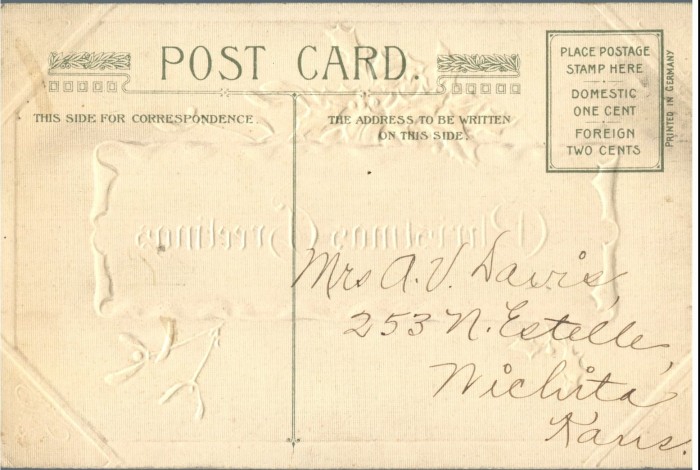 POST CARD.
THIS SIDE FOR CORRESPONDENCE.
THE ADDRESS TO BE WRITTEN
ON THIS SIDE.
PLACE POSTAGE
STAMP HERE
DOMESTIC
ONE CENT
FOREIGN
TWO CENTS
PRINTED IN GERMANY
Christmas Greetings
Mrs A. V. Davis,
253 N. Estelle,
Wichita
Kans.